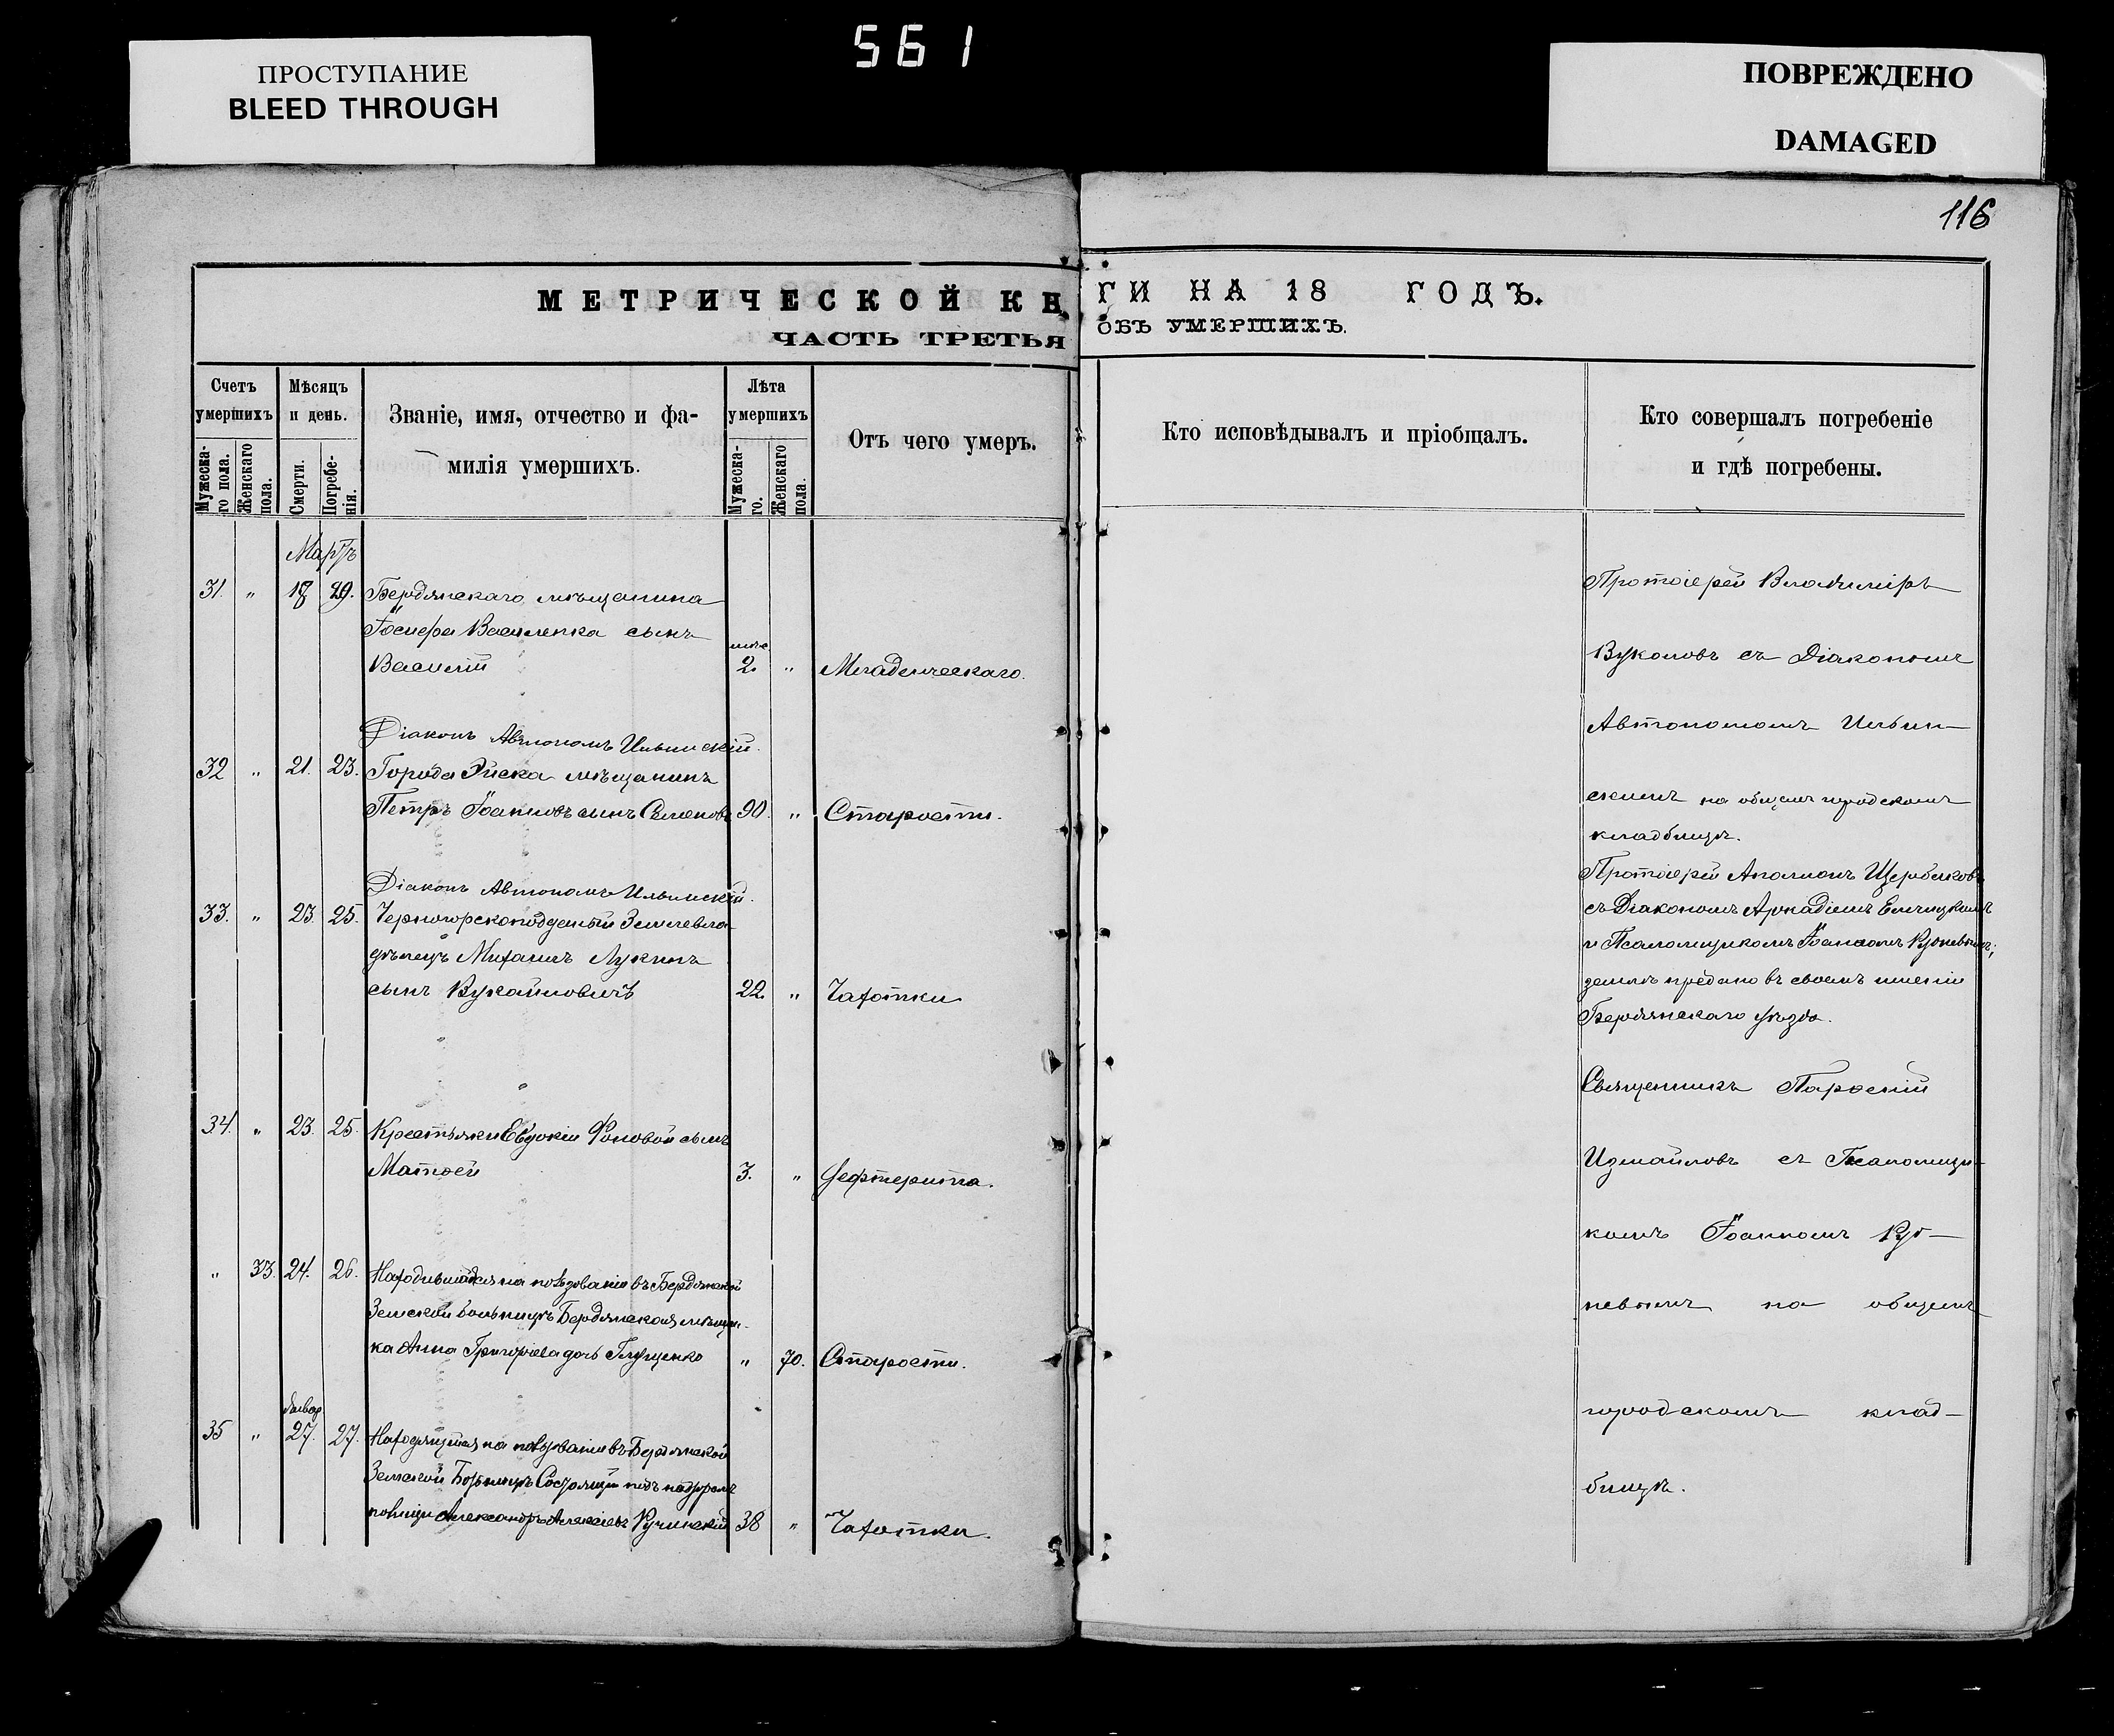 ПРОСТУПАНИЕ
BLEED THROUGH
561
ПОВРЕЖДЕНО
DAMAGED
116
МЕТРИЧЕСКОЙ КНИГИ НА 18 ГОДЪ.
ЧАСТЬ ТРЕТЬЯ ОБЪ УМЕРШИХЪ.
Счетъ умершихъ
Мужеска-го пола.
Женскаго пола.
Мѣсяцъ и день.
Смерти.
Погребе-нія.
Званіе, имя, отчество и фа-
милія умершихъ.
Лѣта умершихъ
Мужеска-го.
Женскаго пола.
Отъ чего умеръ.
Кто исповѣдывалъ и пріобщалъ.
Кто совершалъ погребеніе
и гдѣ погребены.
Мартъ
31. " 18 29. Бердянскаго мѣщанина
Іосифа Василенка сынъ
Василій мѣс. 2. " Младенческаго.
Діаконъ Автономъ Ильинскій.
32 " 21. 23. Города Эйска мѣщанинъ
Петръ Іоанновъ сынъ Семеновъ 90. " Старости.
Діаконъ Автономъ Ильинскій.
33. " 23. 25. Черногорскоподданый Землевла-
дѣлецъ Михаилъ Лукинъ
сынъ Вукайловичъ 22. " Чахотки
34. " 23. 25. Крестьянки Евдокіи Фоновой сынъ
Матвей 3. " Дефтерита.
" 33. 24. 26. Находившаяся на пользованіи въ Бердянской
Земской больницѣ Бердянская мѣщан-
ка Анна Григорьева дочь Глущенко " 70. Старости.
35 " 27. 27. Находящійся на пользованіи въ Бердянской
Земской Больницѣ Состоящій подъ надзоромъ
полиціи Александръ Алексѣевъ Ручинскій 38 " Чахотки.
Протоіерей Владиміръ
Вуколовъ съ Діакономъ
Автономомъ Ильин-
скимъ на общемъ городскомъ
кладбищѣ.
Протоіерей Аполлонъ Щербаковъ
съ Діакономъ Аркадіемъ
и Псаломщикомъ Іоанномъ Рубневымъ;
землѣ предано въ своемъ имѣніи
Бердянскаго уѣзда.
Священникъ Пароеній
Измайловъ съ Псаломщи-
комъ Іоанномъ Руб-
невымъ на общемъ
городскомъ клад-
бищѣ.